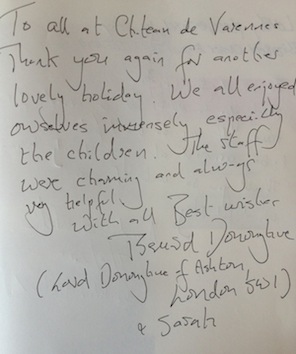 To all at Chateau de Varennes
Thank you again for another
lovely holiday. We all enjoyed
ourselves immensely especially
the children. The staff
were charming and always
very helpful.
With all Best wishes
Bernard Donoughue
(Lord Donoughue of Ashton,
London SW1)
& Sarah